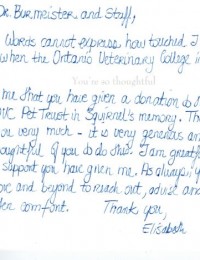 Dr. Burmeister and Staff,
Words cannot express how touched I
when the Ontario Veterinary College in
You're so thoughtful
me that you have given a donation to
Pet Trust in Squirrel's memory. Th
very much - it is very generous an
of you do this. I am greatf
support you have given me. As always, y
and beyond to reach out, advise and
comfort. Thank you,
Elisabeth